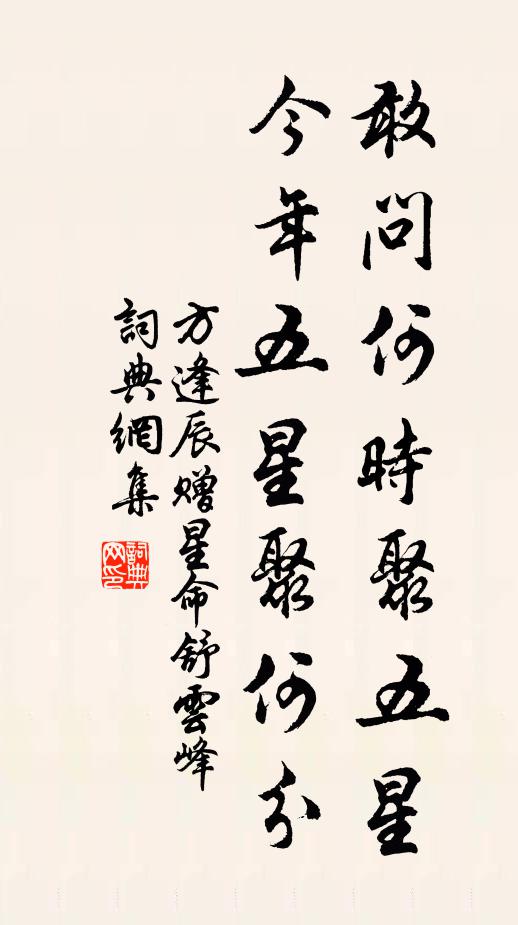 敢問何時聚五星
今年五星聚何分
方逢辰贈星命舒雲峰
詞典網集
詞典網印